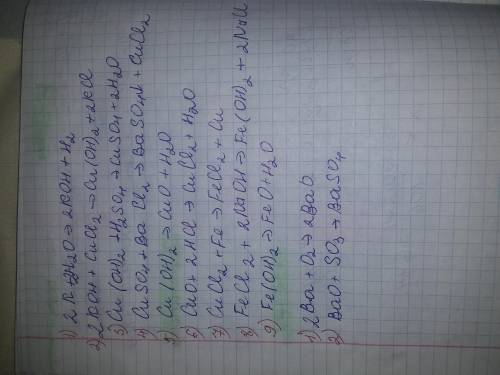 1) 2K+2H2O → 2KOH + H2
2) 2KOH + CuCl2 → Cu(OH)2 + 2KCl
3) Cu(OH)2 + H2SO4 → CuSO4 + 2H2O
4) CuSO4 + BaCl2 → BaSO4↓ + CuCl2
5) Cu(OH)2 → CuO + H2O
6) CuO + 2HCl → CuCl2 + H2O
7) CuCl2 + Fe → FeCl2 + Cu
8) FeCl2 + 2NaOH → Fe(OH)2 + 2NaCl
9) Fe(OH)2 → FeO + H2O
1) 2Ba + O2 → 2BaO
2) BaO + SO3 → BaSO4